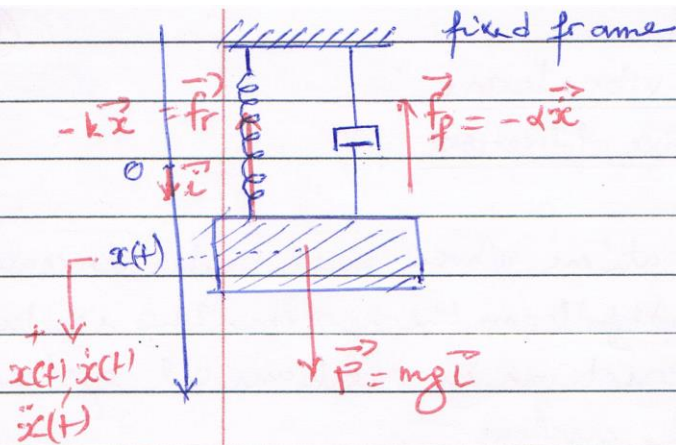 fixed frame
-k\vec{x} = \vec{f_r}
\vec{f_f} = -α\vec{ẋ}
0
\vec{i}
x(t)
+
x(t), ẋ(t)
ẍ(t)
\vec{P} = mg\vec{i}